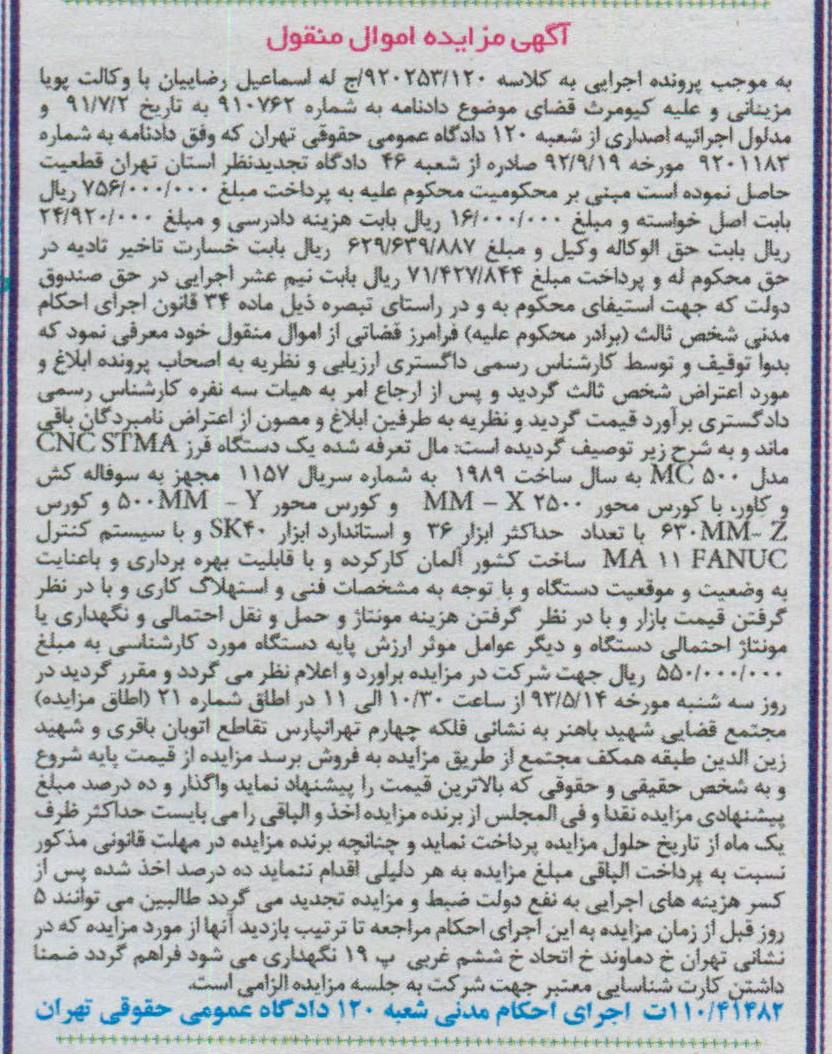 آگهی مزایده اموال منقول
به موجب پرونده اجرایی به کلاسه ۹۲۰۲۵۳/۱۲۰/ج له اسماعیل رضاییان با وکالت پویا
مزینانی و علیه کیومرث قضای موضوع دادنامه به شماره ۹۱۰۷۶۲ به تاریخ ۹۱/۷/۲ و
مدلول اجرائیه اصداری از شعبه ۱۲۰ دادگاه عمومی حقوقی تهران که وفق دادنامه به شماره
۹۲۰۱۱۸۳ مورخه ۹۲/۹/۱۹ صادره از شعبه ۴۶ دادگاه تجدیدنظر استان تهران قطعیت
حاصل نموده است مبنی بر محکومیت محکوم علیه به پرداخت مبلغ ۷۵۶/۰۰۰/۰۰۰ ریال
بابت اصل خواسته و مبلغ ۱۶/۰۰۰/۰۰۰ ریال بابت هزینه دادرسی و مبلغ ۲۴/۹۲۰/۰۰۰
ریال بابت حق الوکاله وکیل و مبلغ ۶۲۹/۶۳۹/۸۸۷ ریال بابت خسارت تاخیر تادیه در
حق محکوم له و پرداخت مبلغ ۷۱/۴۲۷/۸۴۴ ریال بابت نیم عشر اجرایی در حق صندوق
دولت که جهت استیفای محکوم به و در راستای تبصره ذیل ماده ۳۴ قانون اجرای احکام
مدنی شخص ثالث (برادر محکوم علیه) فرامرز قضاتی از اموال منقول خود معرفی نمود که
بدوا توقیف و توسط کارشناس رسمی داگستری ارزیابی و نظریه به اصحاب پرونده ابلاغ و
مورد اعتراض شخص ثالث گردید و پس از ارجاع امر به هیات سه نفره کارشناس رسمی
دادگستری برآورد قیمت گردید و نظریه به طرفین ابلاغ و مصون از اعتراض نامبردگان باقی
ماند و به شرح زیر توصیف گردیده است: مال تعرفه شده یک دستگاه فرز CNC STMA
مدل MC ۵۰۰ به سال ساخت ۱۹۸۹ به شماره سریال ۱۱۵۷ مجهز به سوفاله کش
و کاور، با کورس محور ۲۵۰۰ MM – X و کورس محور ۵۰۰MM – Y و کورس
۶۳۰MM- Z با تعداد حداکثر ابزار ۳۶ و استاندارد ابزار SK۴۰ و با سیستم کنترل
MA ۱۱ FANUC ساخت کشور آلمان کارکرده و با قابلیت بهره برداری و باعنایت
به وضعیت و موقعیت دستگاه و با توجه به مشخصات فنی و استهلاک کاری و با در نظر
گرفتن قیمت بازار و با در نظر گرفتن هزینه مونتاژ و حمل و نقل احتمالی و نگهداری یا
مونتاژ احتمالی دستگاه و دیگر عوامل موثر ارزش پایه دستگاه مورد کارشناسی به مبلغ
۵۵۰/۰۰۰/۰۰۰ ریال جهت شرکت در مزایده براورد و اعلام نظر می گردد و مقرر گردید در
روز سه شنبه مورخه ۹۳/۵/۱۴ از ساعت ۱۰/۳۰ الی ۱۱ در اطاق شماره ۲۱ (اطاق مزایده)
مجتمع قضایی شهید باهنر به نشانی فلکه چهارم تهرانپارس تقاطع اتوبان باقری و شهید
زین الدین طبقه همکف مجتمع از طریق مزایده به فروش برسد مزایده از قیمت پایه شروع
و به شخص حقیقی و حقوقی که بالاترین قیمت را پیشنهاد نماید واگذار و ده درصد مبلغ
پیشنهادی مزایده نقدا و فی المجلس از برنده مزایده اخذ و الباقی را می بایست حداکثر ظرف
یک ماه از تاریخ حلول مزایده پرداخت نماید و چنانچه برنده مزایده در مهلت قانونی مذکور
نسبت به پرداخت الباقی مبلغ مزایده به هر دلیلی اقدام ننماید ده درصد اخذ شده پس از
کسر هزینه های اجرایی به نفع دولت ضبط و مزایده تجدید می گردد طالبین می توانند ۵
روز قبل از زمان مزایده به این اجرای احکام مراجعه تا ترتیب بازدید آنها از مورد مزایده که در
نشانی تهران خ دماوند خ اتحاد خ ششم غربی پ ۱۹ نگهداری می شود فراهم گردد ضمنا
داشتن کارت شناسایی معتبر جهت شرکت به جلسه مزایده الزامی است.
۱۱۰/۴۱۴۸۲ت اجرای احکام مدنی شعبه ۱۲۰ دادگاه عمومی حقوقی تهران